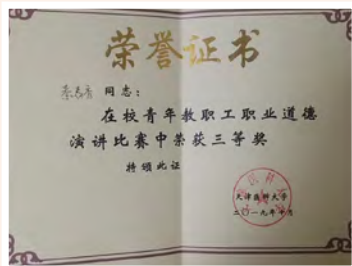 荣誉证书
同志：
在校青年教职工职业道德
演讲比赛中荣获三等奖
特颁此证
天津医科大学
二〇一九年十月